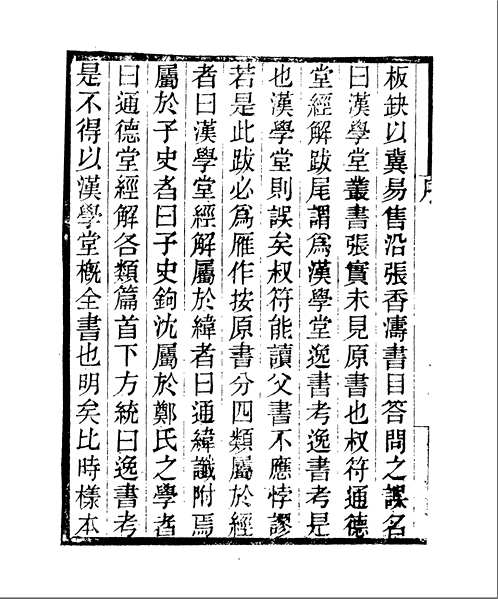 板缺以冀易售沿張香濤書目答問之誤名
曰漢學堂叢書張實未見原書也叔符通德
堂經解跋尾謂為漢學堂逸書考逸書考是
也漢學堂則誤矣叔符能讀父書不應悖謬
若是此跋必為雁作按原書分四類屬於經
者曰漢學堂經解屬於緯者曰通緯讖附焉
屬於子史者曰子史鉤沈屬於鄭氏之學者
曰通德堂經解各類篇首下方統曰逸書考
是不得以漢學堂概全書也明矣比時樣本